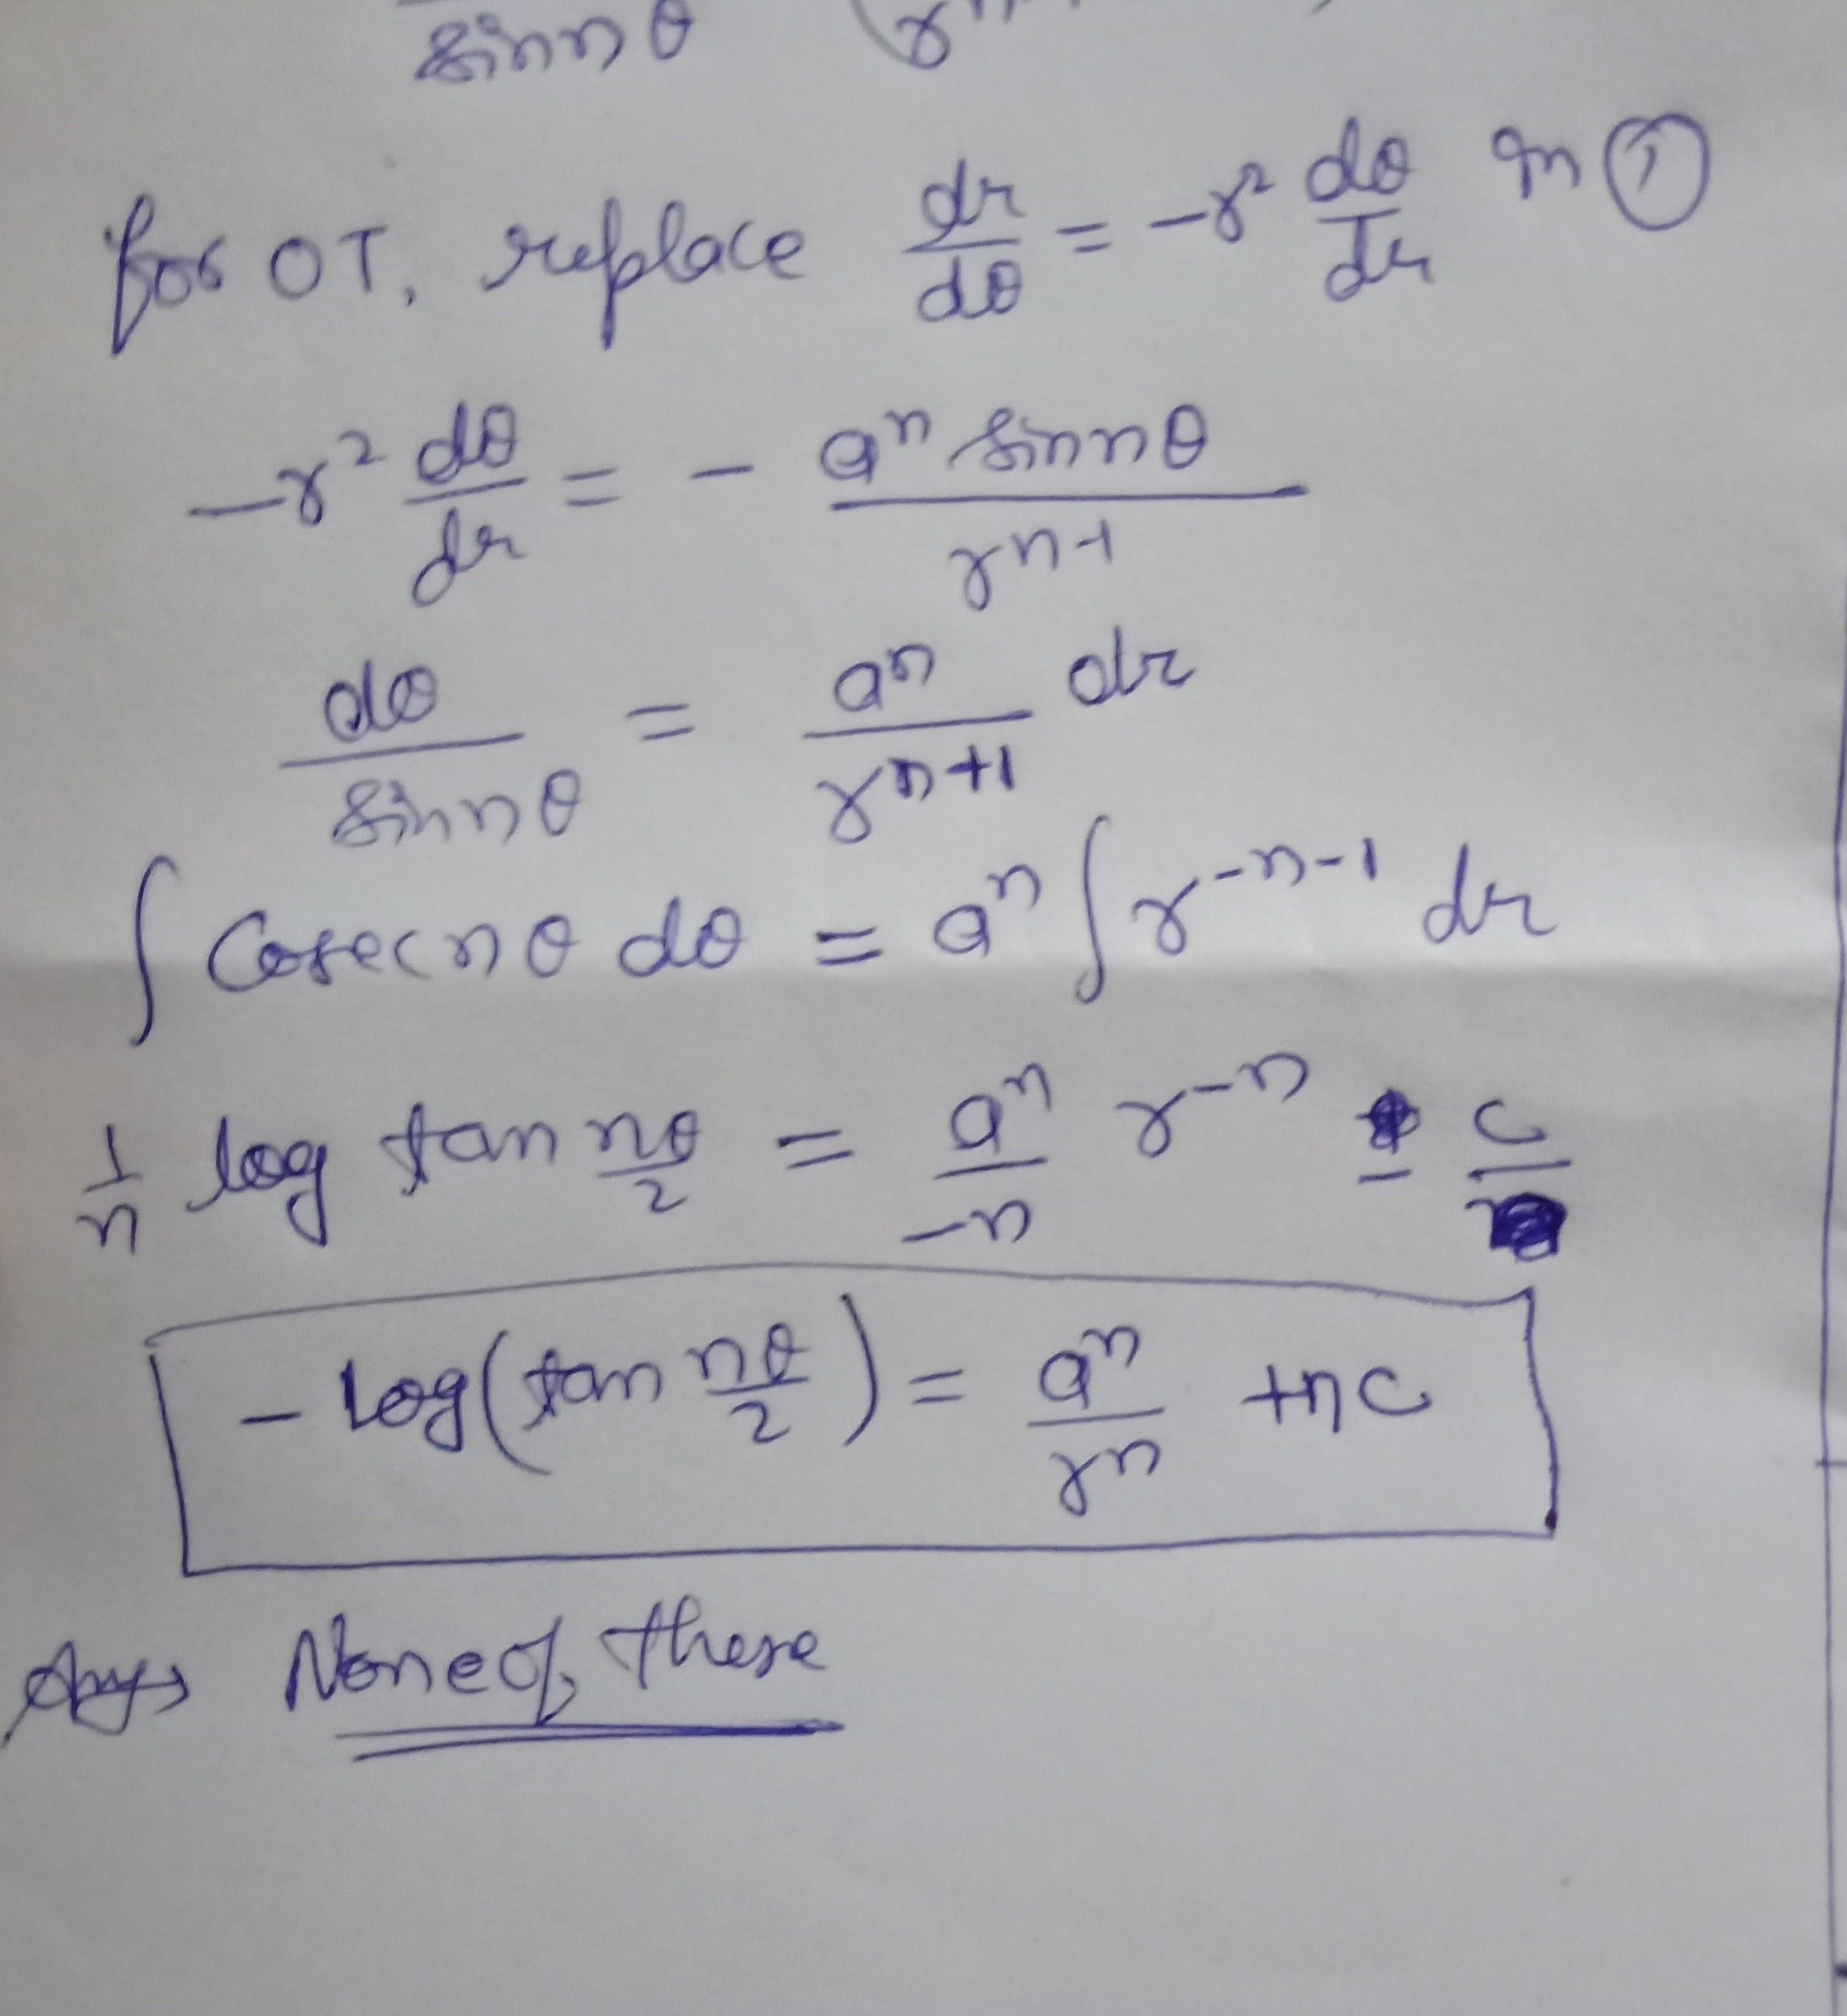 sin nθ r
for OT, replace dr/dθ = -r² dθ/dr in ①
-r² dθ/dr = - aⁿ sin nθ / rⁿ⁻¹
dθ / sin nθ = aⁿ / rⁿ⁺¹ dr
∫ Cosec nθ dθ = aⁿ ∫ r⁻ⁿ⁻¹ dr
1/n log tan nθ/2 = aⁿ/-n r⁻ⁿ - c
- log(tan nθ/2) = aⁿ/rⁿ + nc
Ans None of these